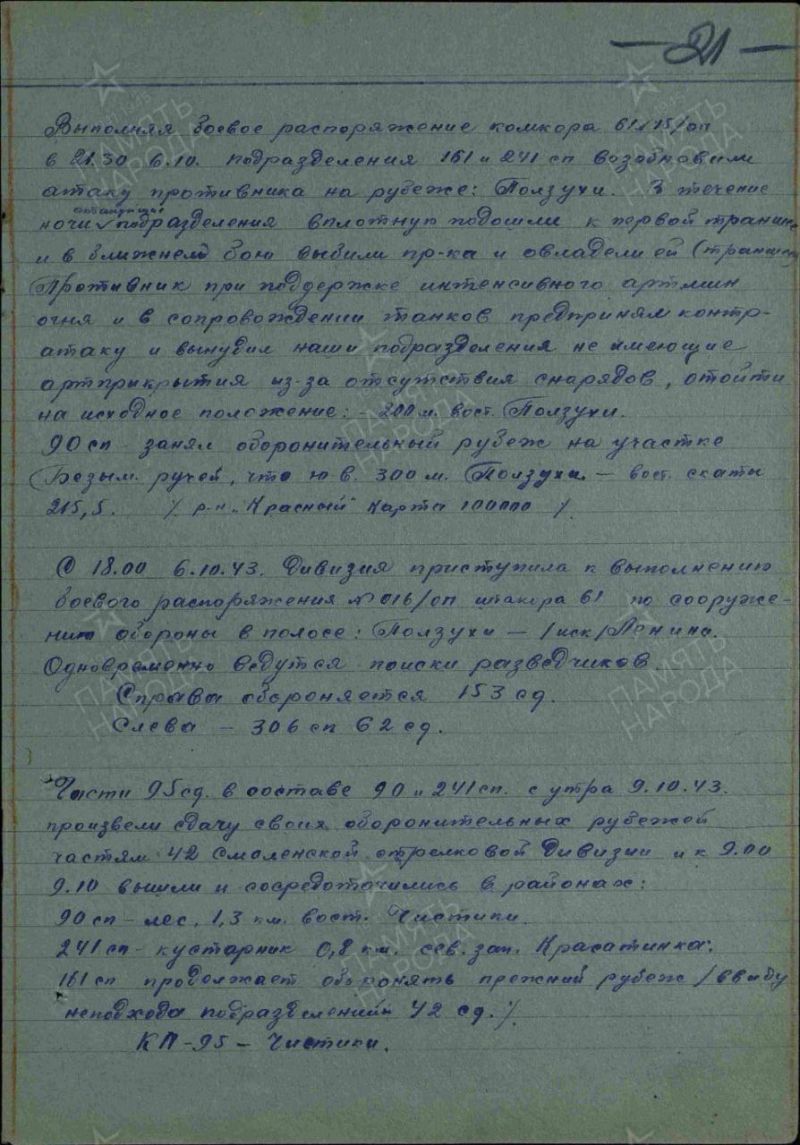 — 21 —
Выполняя боевое распоряжение комкора 61 /оп
в 21.30 6.10. подразделения 161 и 241 сп возобновили
атаку противника на рубеже: Ползухи. В течение
ночи подразделения вплотную подошли к первой транше
и в ближнем бою выбили пр-ка и овладели ей (транше
Противник при поддержке интенсивного артмин
огня и в сопровождении танков предпринял контр-
атаку и вынудил наши подразделения не имеющие
артприкрытия из-за отсутствия снарядов, отойти
на исходное положение: – 200 м. вост. Ползухи.
90 сп – занял оборонительный рубеж на участке
Безым. ручей, что ю-в. 300 м. Ползухи – вост. скаты
215,5. / р-н „Красный" карта 100000 /
С 18.00 6.10.43. Дивизия приступила к выполнению
боевого распоряжения № 016/оп штакора 61 по сооруже-
нию обороны в полосе: Ползухи – /иск/ Ленино.
Одновременно ведутся поиски разведчиков
Справа обороняется 153 сд.
Слева – 306 сп 62 сд.
Части 95 сд. в составе 90 и 241 сп. с утра 9.10.43.
произвели сдачу своих оборонительных рубежей
частям 42 Смоленской стрелковой Дивизии и к 9.00
9.10 вышли и сосредоточились в районах:
90 сп – лес, 1,3 км. вост. Чистики.
241 сп – кустарник 0,8 км. сев. зап. Красатинка.
161 сп продолжает оборонять прежний рубеж /ввиду
неподхода подразделений 42 сд. /
КП – 95 – Чистики.
ПАМЯТЬ
НАРОДА